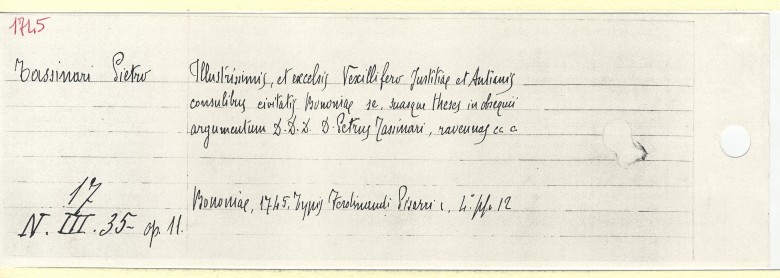 1745
Tassinari Pietro
Illustrissimis, et excelsis Vexillifero Justitiae et Antianis
consulibus civitatis Bononiae se, suasque theses in obsequii
argumentum D. D. D. D. Petrus Tassinari, ravennas
Bononiae, 1745. Typis Ferdinandi Pisarri, 4° pp. 12
17
N. III. 35- op. 11.